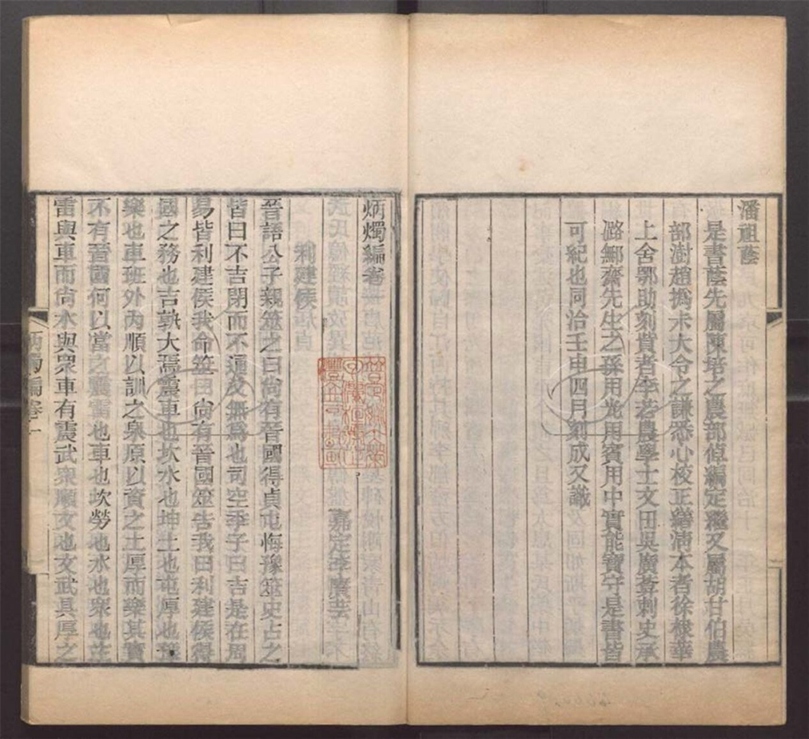 潘祖蔭
是書蔭先屬陳培之農部倬編定繼又屬胡甘伯農
部澍趙撝未大令之謙悉心校正繕清本者徐棣華
上舍鄂助刻貲者李若農學士文田吳廣菴刺史承
潞鄦齋先生之孫用光用賓用中實能寶守是書皆
可紀也同治壬申四月刻成又識
炳燭編卷一
嘉定李賡芸
利建侯
晉語公子親筮之曰尚有晉國得貞屯悔豫筮史占之
皆曰不吉閉而不通爻無為也司空季子曰吉是在周
易皆利建侯我命筮曰尚有晉國筮告我曰利建侯得
國之務也吉孰大焉震車也坎水也坤土也屯厚也豫
樂也車班外內順以訓之泉原以資之土厚而樂其實
不有晉國何以當之震雷也車也坎勞也水也眾也主
雷與車而尚水與眾車有震武眾順文也文武具厚之
炳燭編卷一